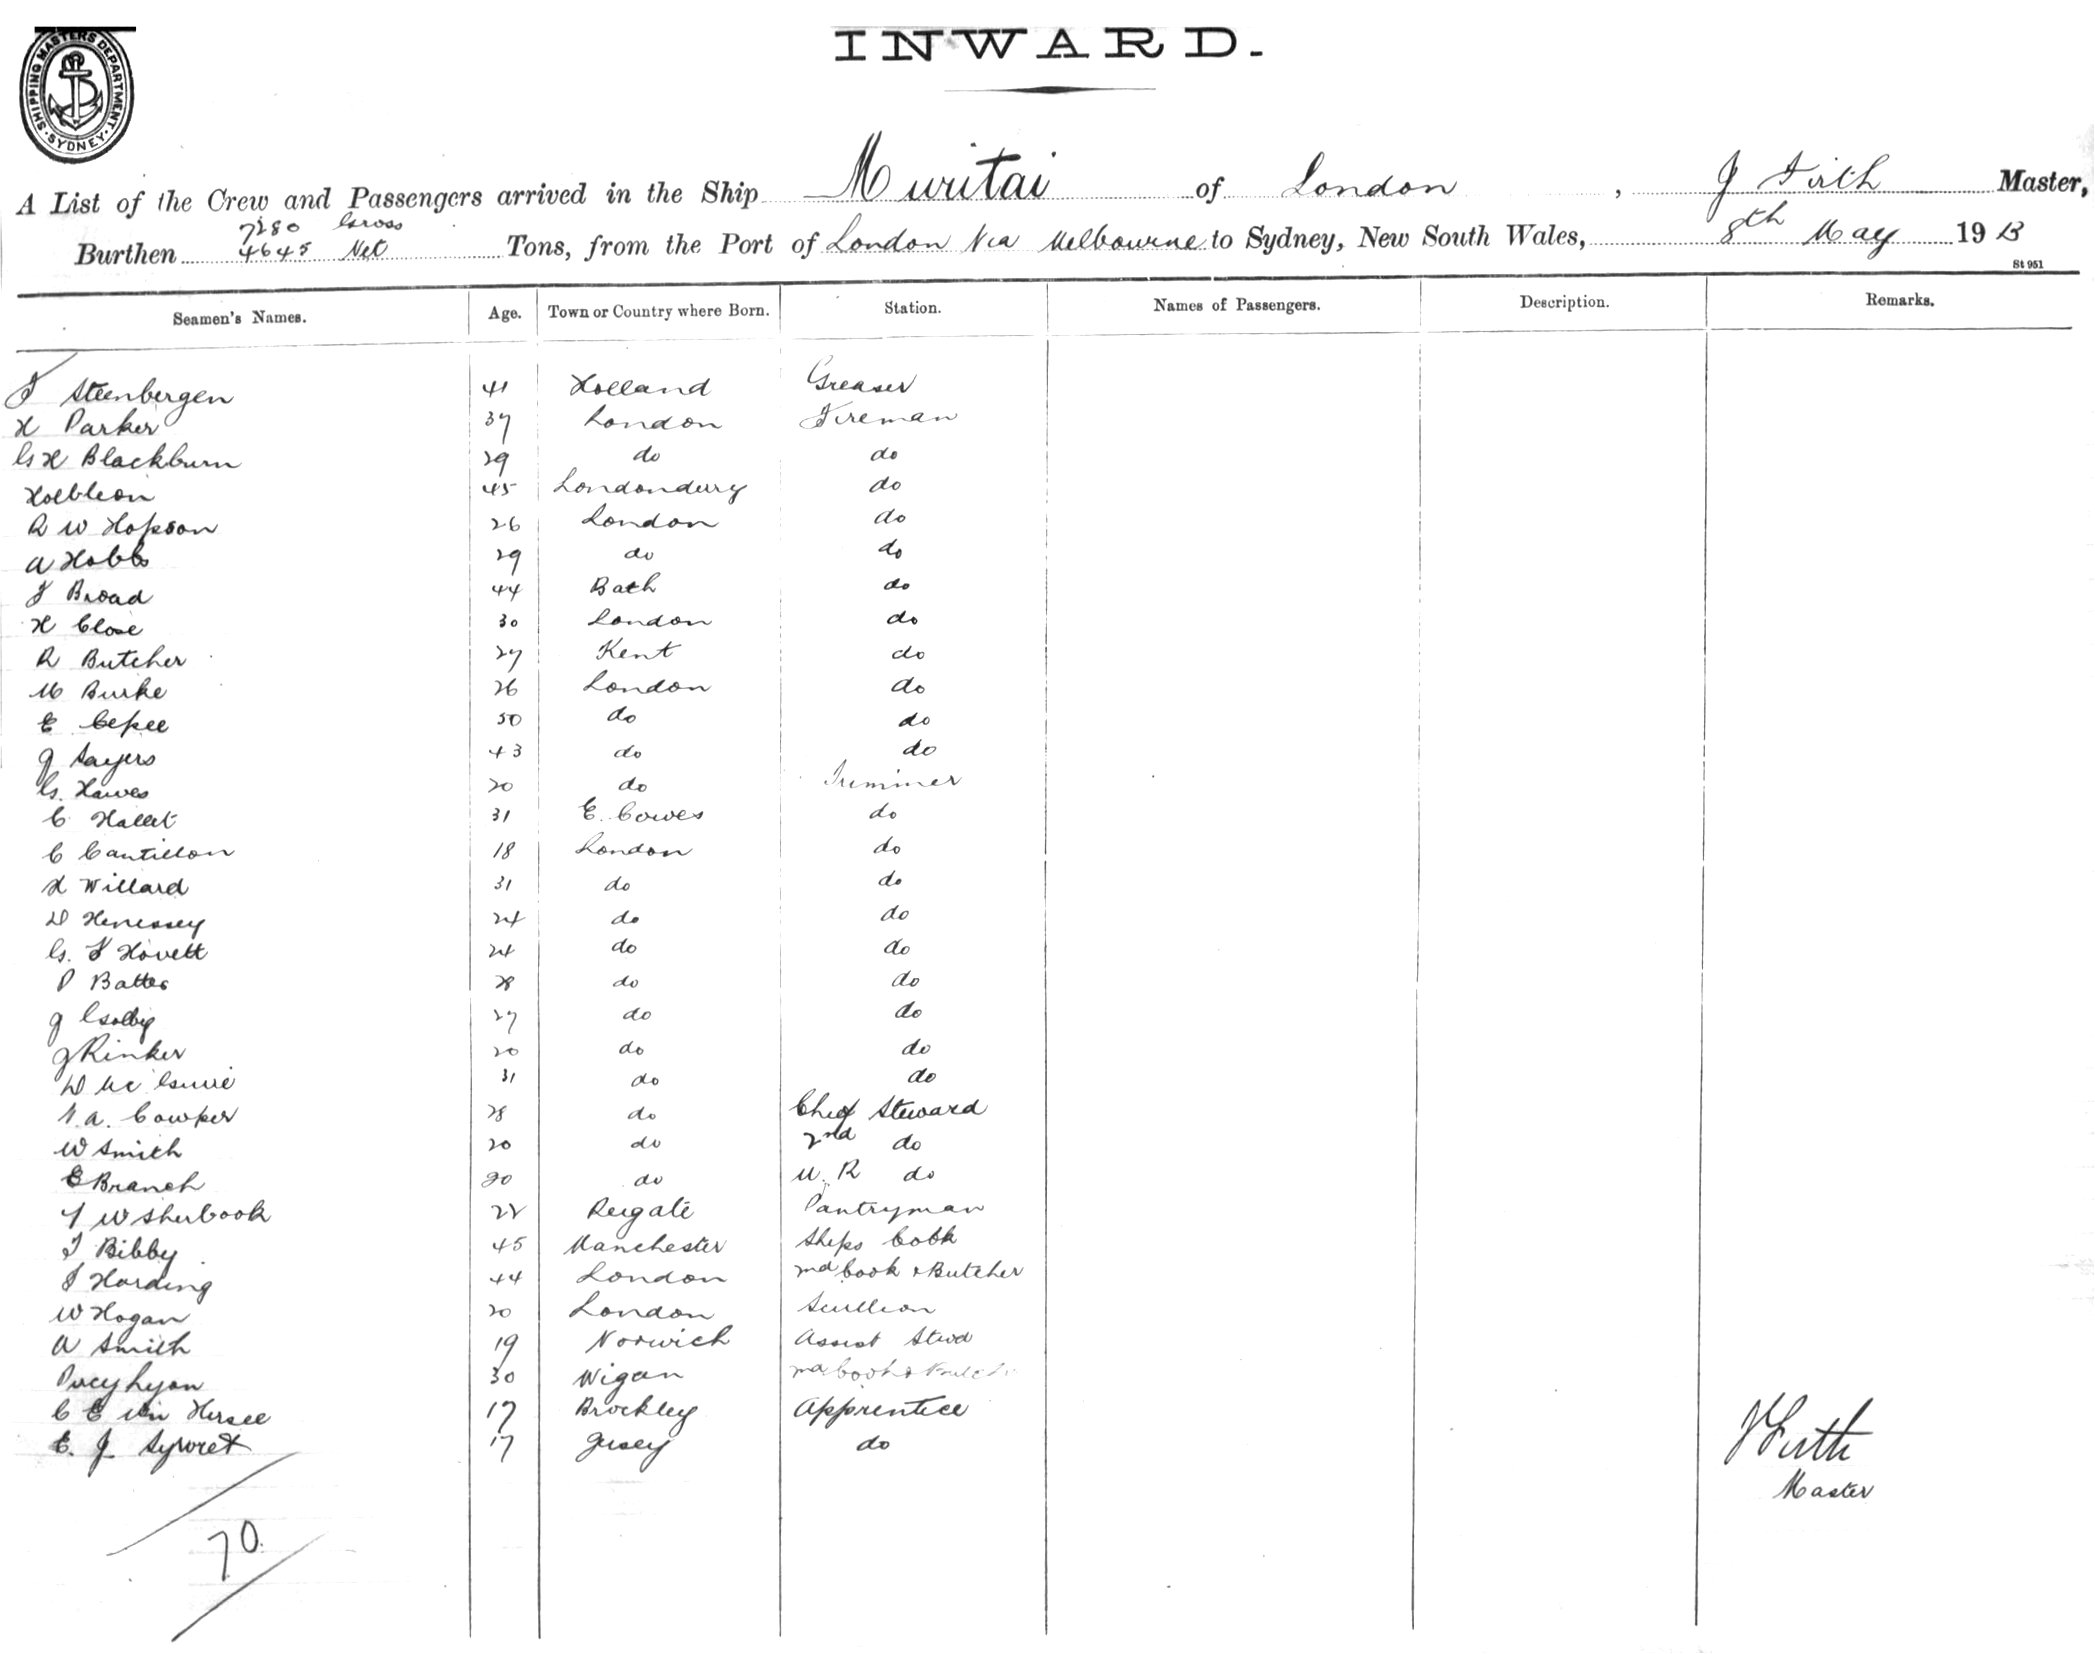 SHIPPING MASTERS DEPARTMENT · SYDNEY ·
INWARD.
A List of the Crew and Passengers arrived in the Ship Muritai of London, J Firth Master,
7280 Gross
Burthen 4645 Net Tons, from the Port of London Via Melbourne to Sydney, New South Wales, 8th May 1913
St 951
Seamen's Names. Age. Town or Country where Born. Station. Names of Passengers. Description. Remarks.
J Steenbergen 41 Holland Greaser
H Parker 37 London Fireman
G H Blackburn 29 do do
45 Londonderry do
R W Hopson 26 London do
A Hobbs 29 do do
J Broad 44 Bath do
H Close 30 London do
R Butcher 27 Kent do
M Burke 26 London do
E Cepee 50 do do
J Sayers 43 do do
G. Hawes 20 do Trimmer
C Hallet 31 E. Cowes do
C Cantillon 18 London do
H Willard 31 do do
D Henessey 24 do do
G. F Hovett 24 do do
P Batter 28 do do
J 27 do do
J Rinker 20 do do
D Mc 31 do do
A. Cowper 28 do Chief Steward
W Smith 20 do 2nd do
E Branch 20 do M. R do
W Sherbook 22 Reigate Pantryman
J Bibby 45 Manchester Ships Cook
J Harding 44 London 2nd Cook & Butcher
W Hogan 20 London Scullion
A Smith 19 Norwich Assist Stwd
Percy Lyon 30 Wigan 2nd Cook &
C E Van Hersee 17 Brockley Apprentice
E. J. Syvret 17 Jersey do
J Firth
Master
70.